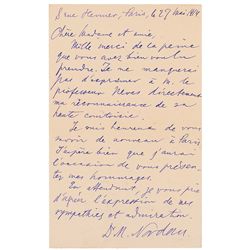 8 rue Henner, Paris, le 27 mai 1914
Chère Madame et amie,
Mille merci de la peine
que vous avez bien voulu
prendre. Je ne manquerai
pas d'exprimer à M. le
professeur Neves directement
ma réconnaissance de sa
haute courtoisie.
Je suis heureux de vous
savoir de nouveau à Paris
J'espère bien que j'aurai
l'occasion de vous présen-
ter mes hommages.
En attendant, je vous prie
d'agréer l'expression de mes
sympathies et admiration.
Dr M. Nordau